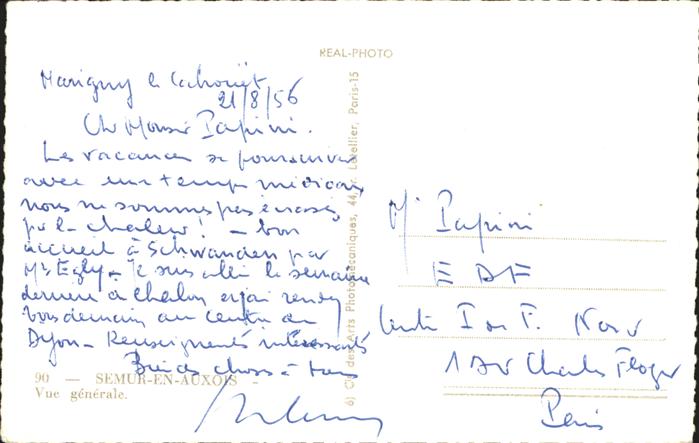 REAL-PHOTO
Marigny le Cahouët
21/8/56
Ch Monsr Papini.
Les vacances se poursuivent
avec un temps médiocre
nous ne sommes pas écrasés
par la chaleur! - bon
accueil à Schwanden par
Mr Egly - Je suis allé la semaine
dernière à Chalon et j'ai rendez
vous demain au centre de
Dijon - Renseignements intéressants
choses à tous
90 — SEMUR-EN-AUXOIS -
Vue générale.
des Arts Photomécaniques, 44, r. Letellier, Paris-15
Mr Papini
E D F
Centre Nord
Av Charles Floquet
Paris